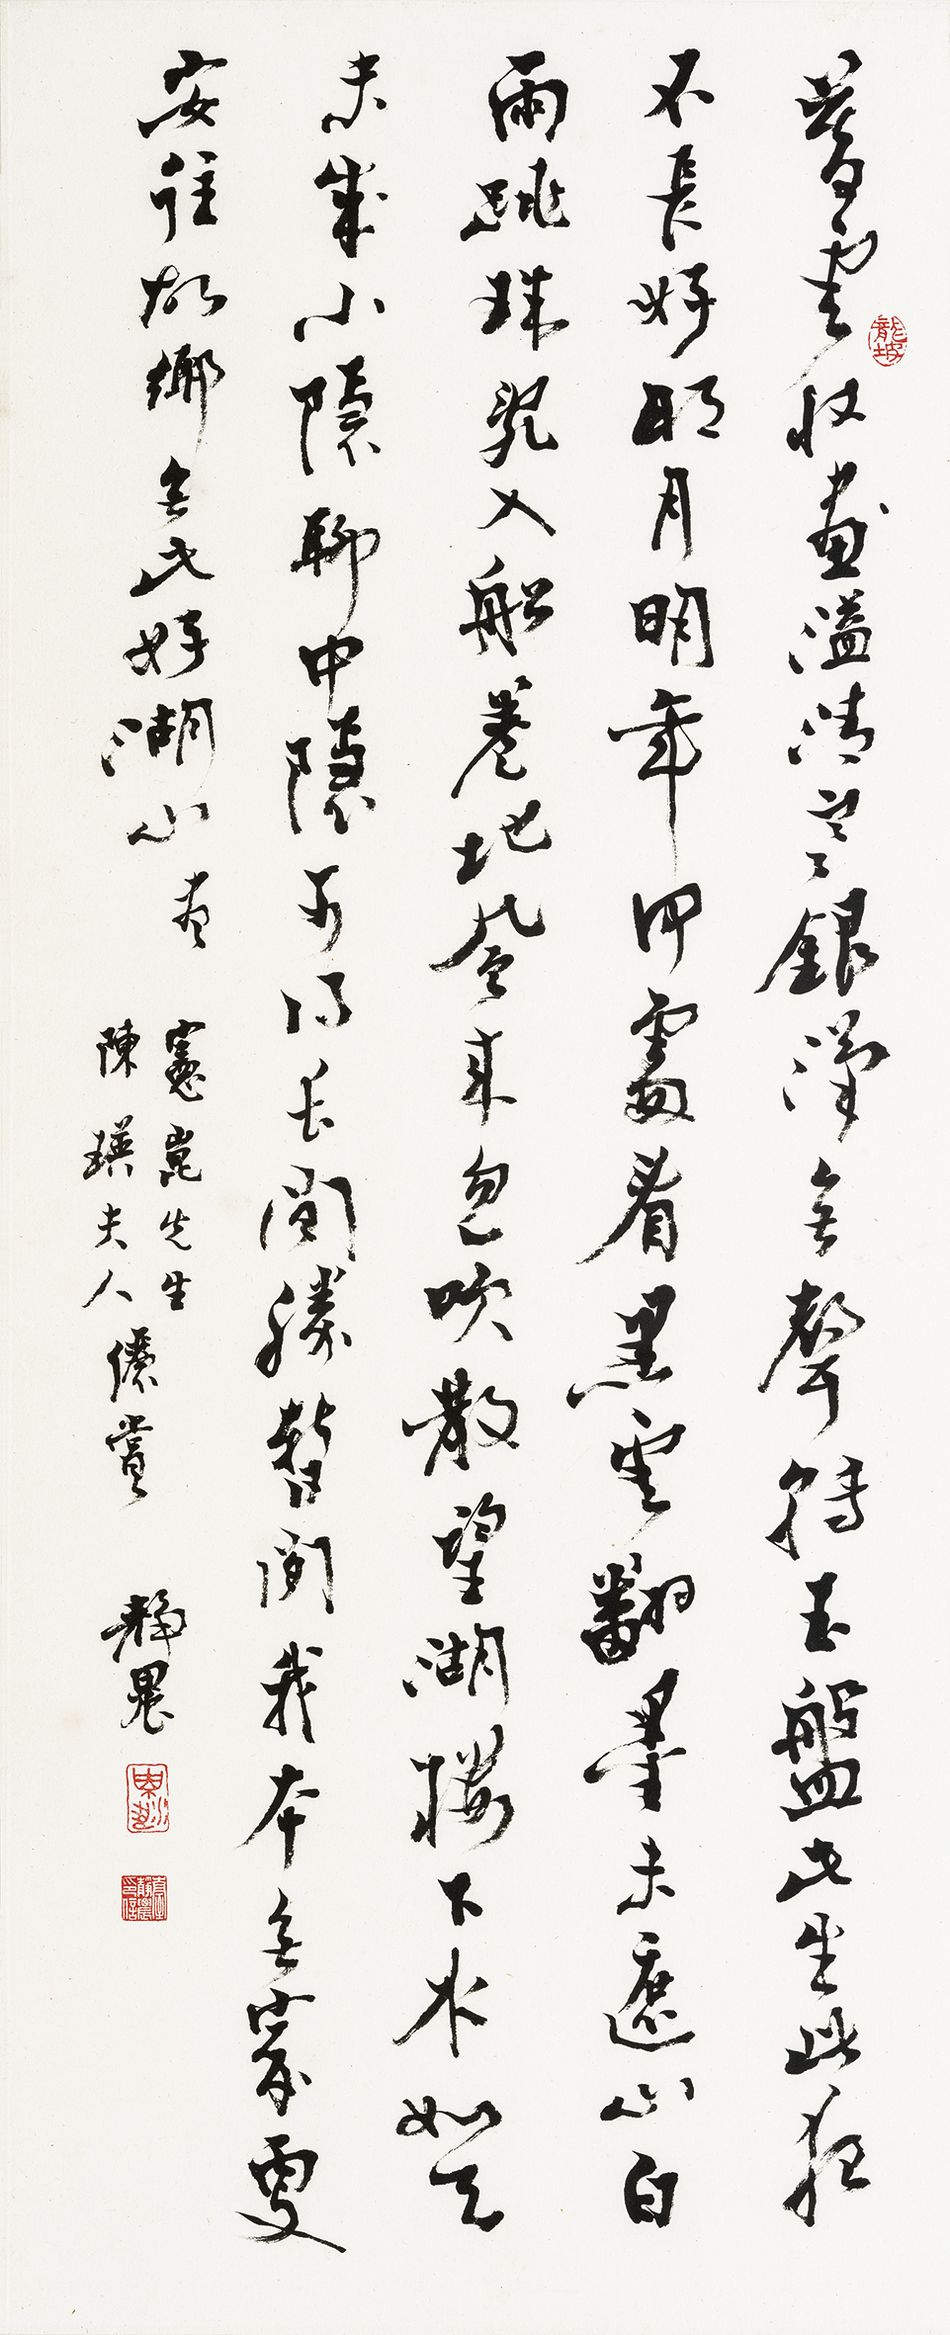 暮雲收盡溢清寒銀漢無聲轉玉盤此生此夜
不長好明月明年何處看黑雲翻墨未遮山白
雨跳珠亂入船卷地風來忽吹散望湖樓下水如天
未成小隱聊中隱可得長閒勝暫閒我本無家更
安往故鄉無此好湖山 書
憲崑先生
陳瑛夫人 儷賞
靜農
龍坡
臺靜農印信